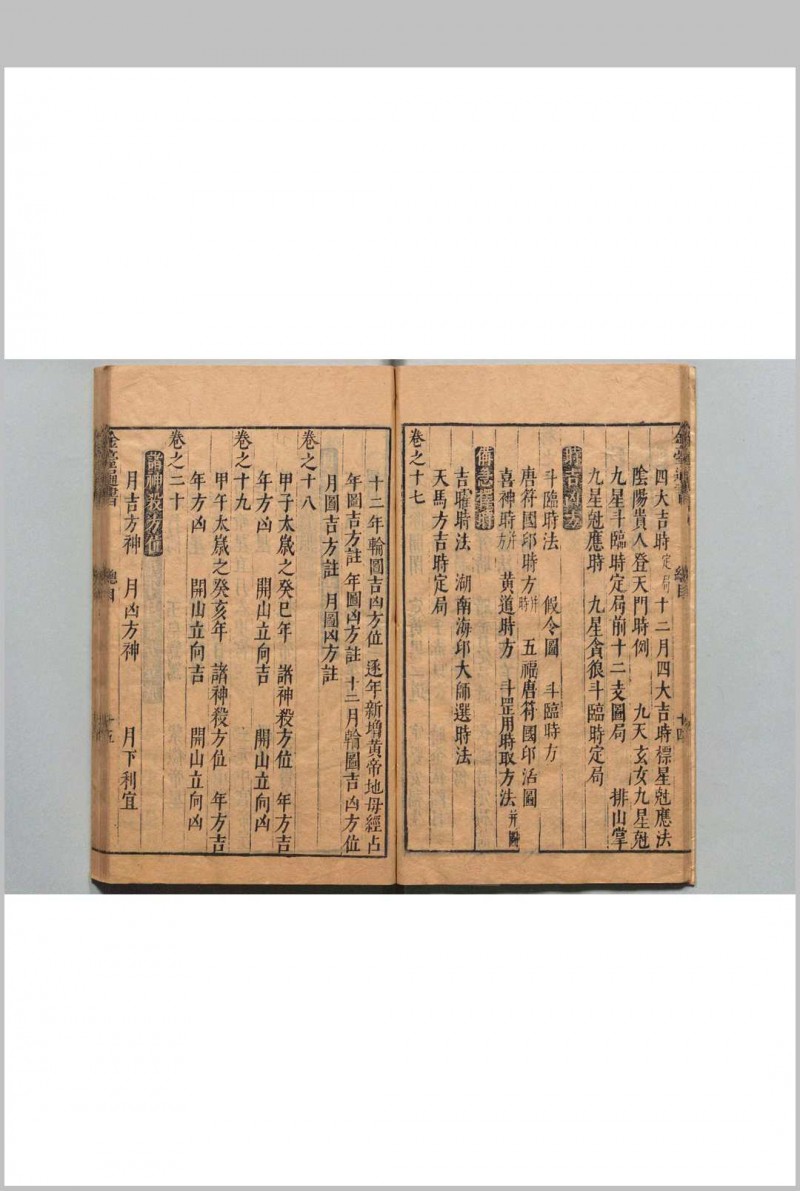 四大吉時定局 十二月四大吉時標星尅應法
陰陽貴人登天門時例 九天玄女九星尅
九星斗臨時定局前十二支圖局 排山掌
九星尅應時 九星貪狼斗臨時定局
時吉凶方
斗臨時法 假令圖 斗臨時方
唐符國印時方并時 五福唐符國印活圖
喜神時方并 黄道時方 斗罡用時取方法并圖
備急
吉曜時法 湖南海印大師選時法
天馬方吉時定局
卷之十七
總目
十四
十二年輪圖吉凶方位 逐年新增黃帝地母經占
年圖吉方註 年圖凶方註 十二月輪圖吉凶方位
月圖吉方註 月圖凶方註
卷之十八
甲子太歲之癸巳年 諸神殺方位 年方吉
年方凶 開山立向吉 開山立向凶
卷之十九
甲午太歲之癸亥年 諸神殺方位 年方吉
年方凶 開山立向吉 開山立向凶
卷之二十
諸神殺方位
月吉方神 月凶方神 月下利宜
通書
總目
十五